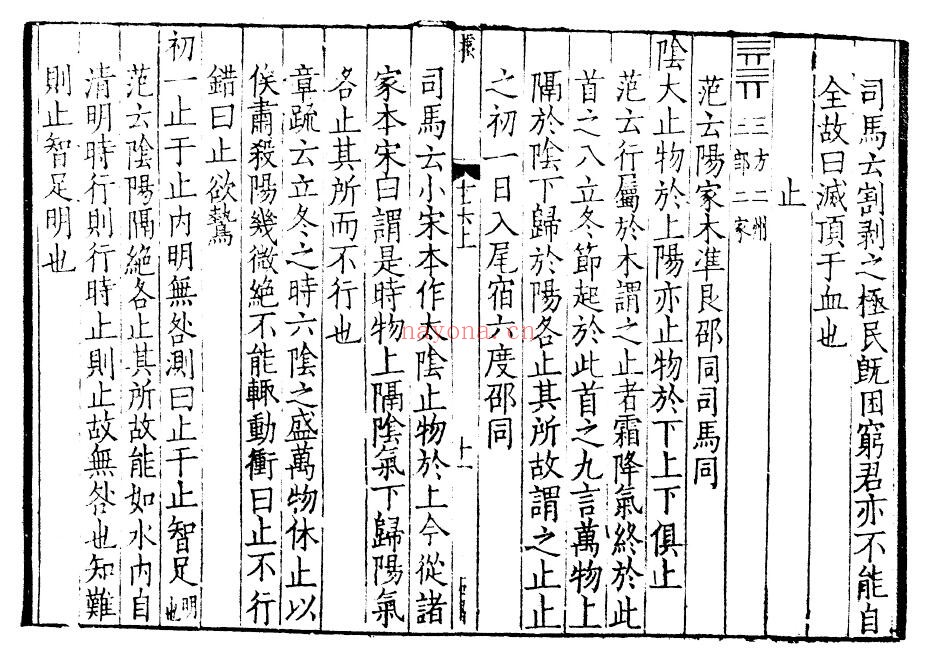 司馬云割剥之極民旣困窮君亦不能自
全故曰滅頂于血也
止
三方二州
三部二家
范云陽家木準艮邵同司馬同
陰大止物於上陽亦止物於下上下俱止
范云行屬於木謂之止者霜降氣終於此
首之八立冬節起於此首之九言萬物上
隔於陰下歸於陽各止其所故謂之止止
之初一日入尾宿六度邵同
十六上
十一
司馬云小宋本作太陰止物於上今從諸
家本宋曰謂是時物上隔陰氣下歸陽氣
各止其所而不行也
章疏云立冬之時六陰之盛萬物休止以
俟肅殺陽幾微絶不能輙動衝曰止不行
錯曰止欲鷙
初一止于止内明無咎測曰止于止智足明也
范云陰陽隔絶各止其所故能如水内自
清明時行則行時止則止故無咎也知難
則止智足明也
nayona.cn